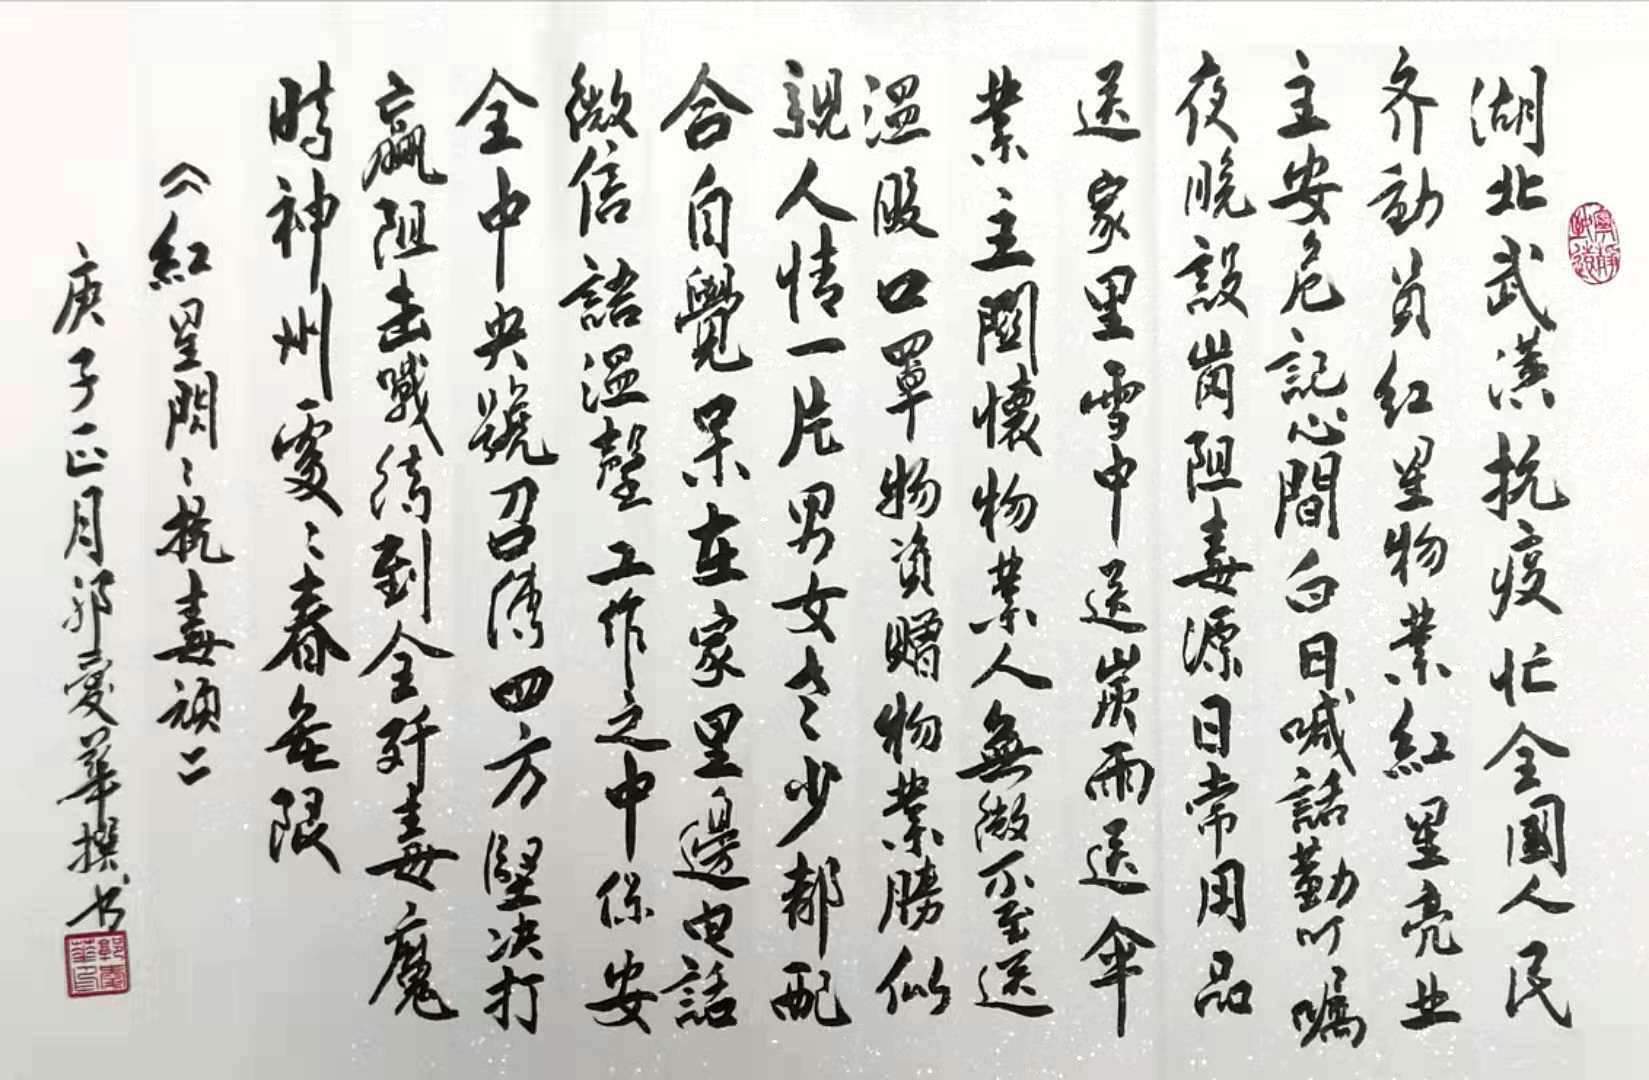 湖北武漢抗疫忙全國人民
齐動員红星物業紅星亮业
主安危記心間白日喊話勤叮嘱
夜晚設崗阻毒源日常用品
送家里雪中送炭雨送伞
業主關懷物業人無微不至送
温暖口罩物资赠物業勝似
親人情一片男女老少都配
合自覺呆在家里邊电話
微信話温馨工作之中保安
全中央號召傳四方堅决打
赢阻击戰待到全歼毒魔
時神州處〻春無限
《紅星閃〻抗毒頑》
庚子正月郭愛華撰书
寧静致遠